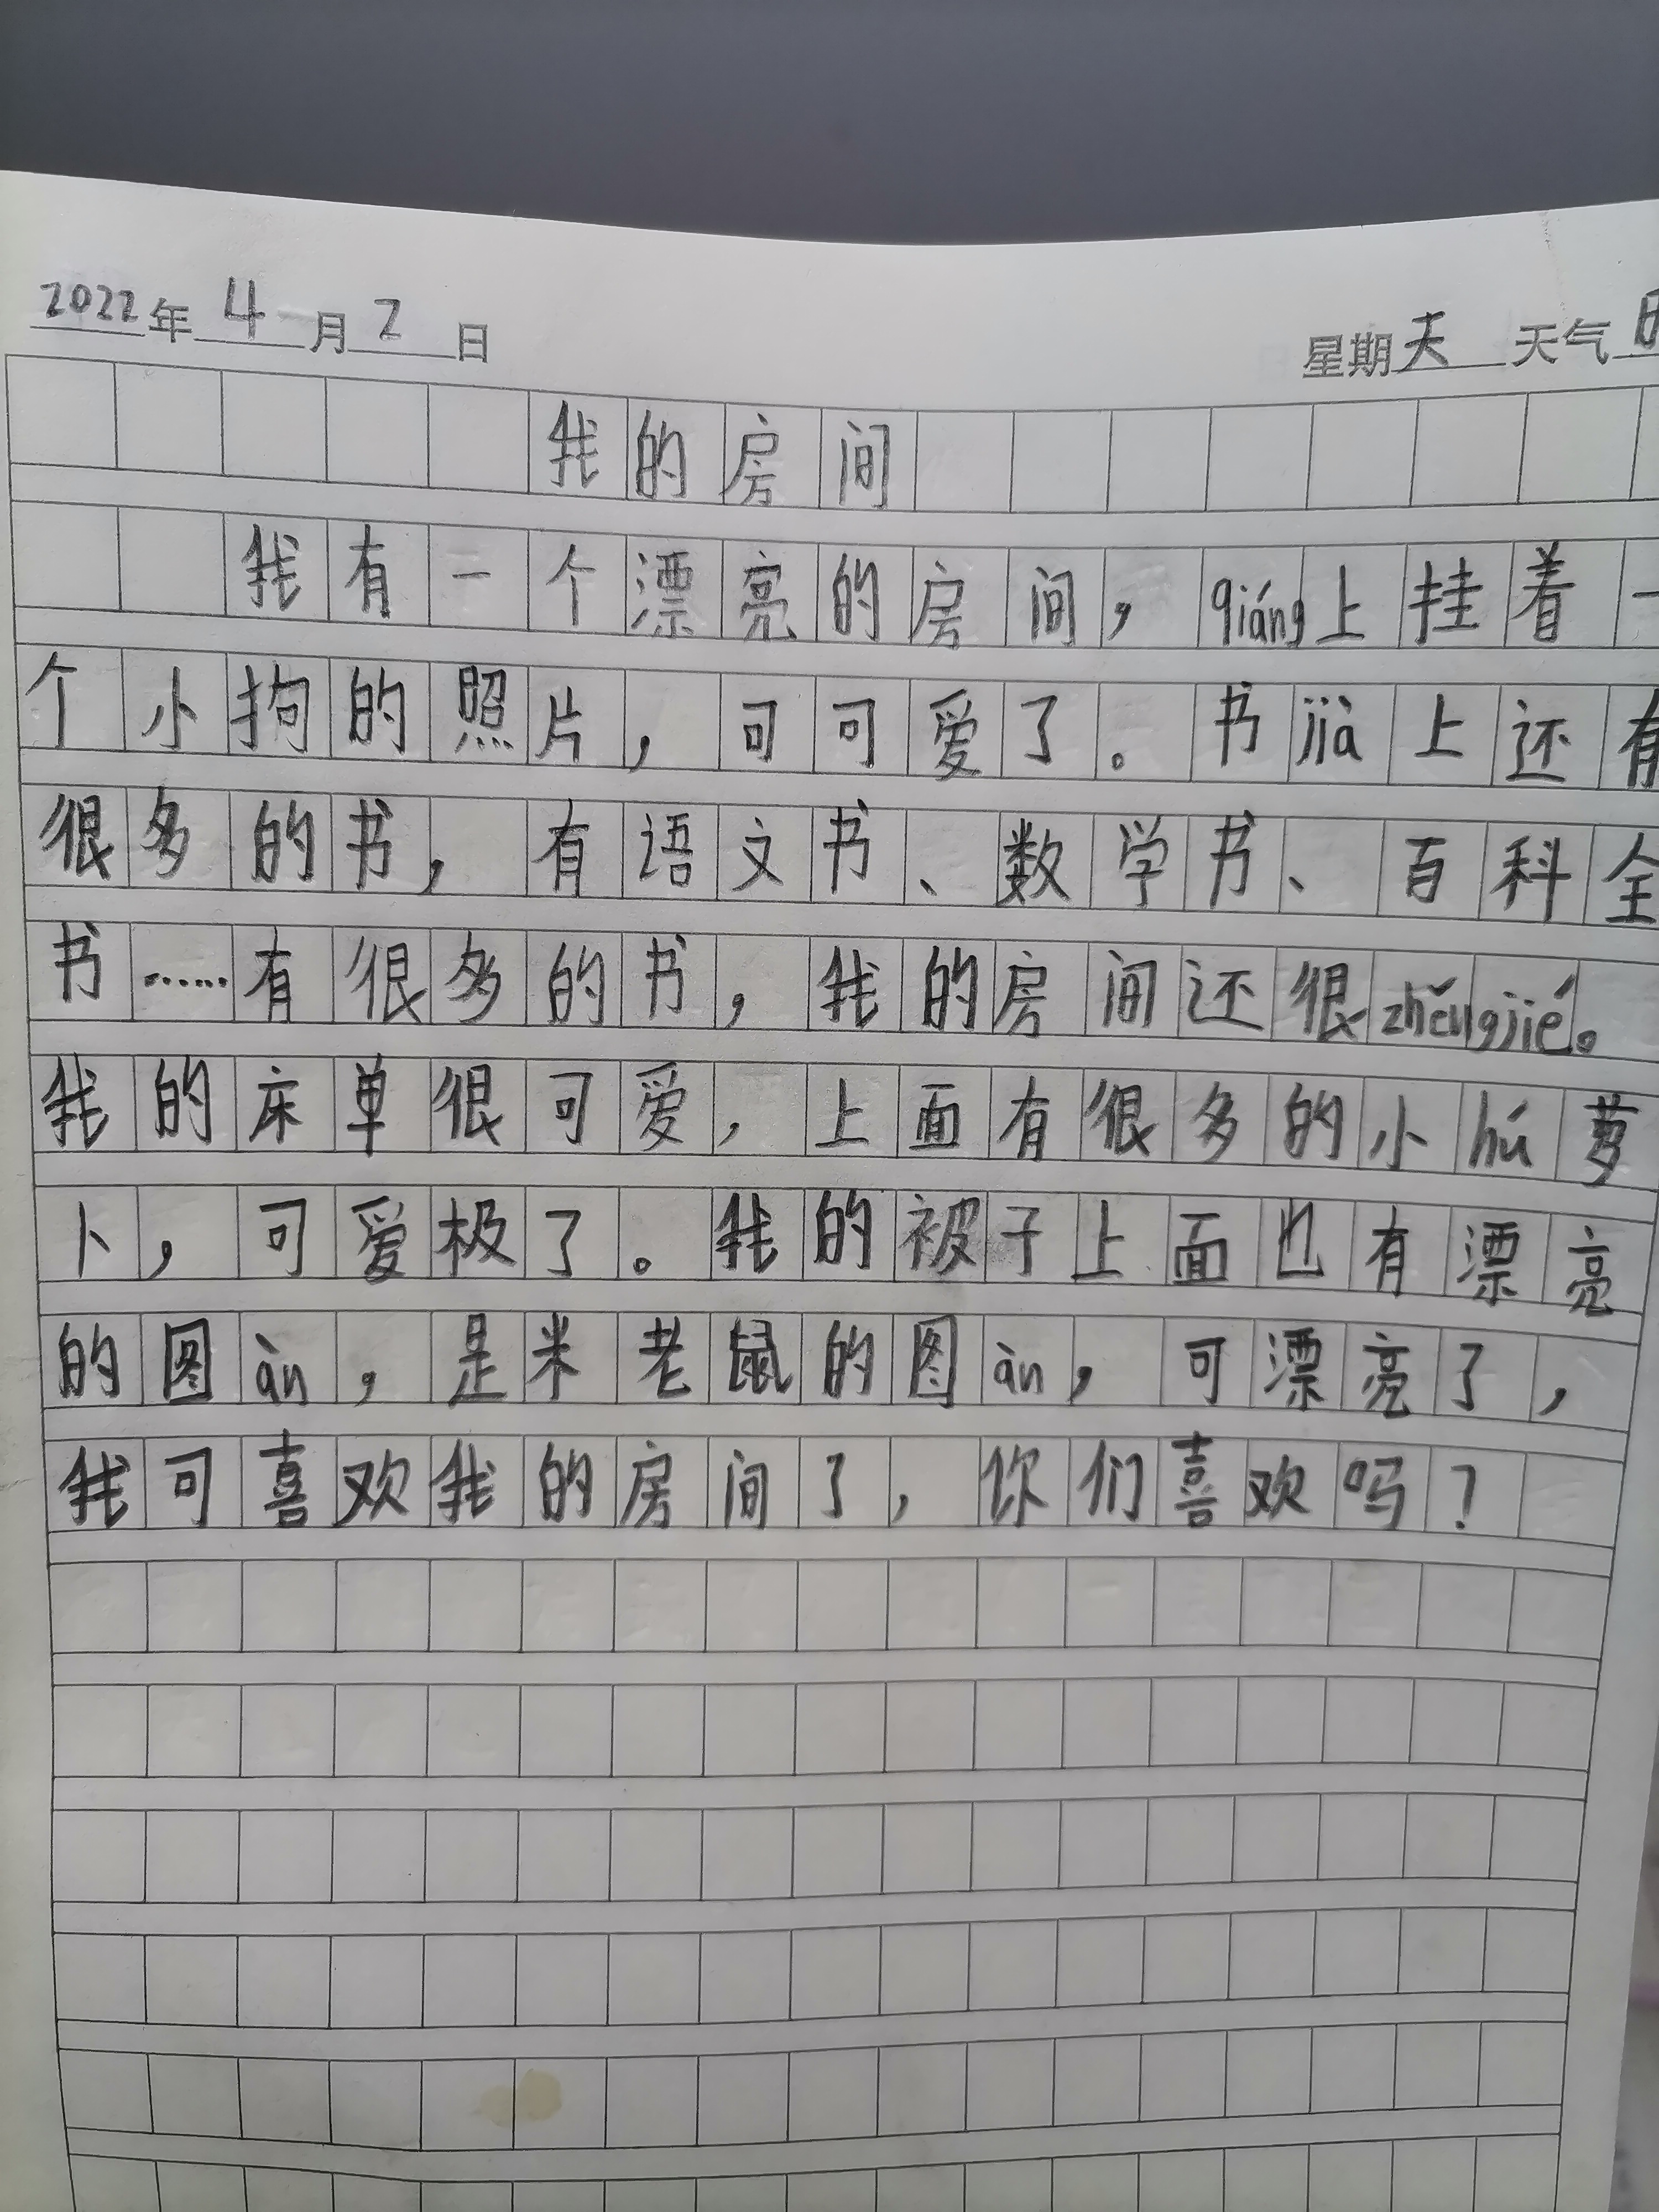 2022年 4 月 2 日 星期天 天气
我的房间
我有一个漂亮的房间，qiáng上挂着一
个小拘的照片，可可爱了。书jià上还有
很多的书，有语文书、数学书、百科全
书……有很多的书，我的房间还很zhěngjié。
我的床单很可爱，上面有很多的小hú萝
卜，可爱极了。我的被子上面也有漂亮
的图àn，是米老鼠的图àn，可漂亮了，
我可喜欢我的房间了，你们喜欢吗？